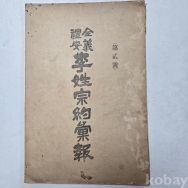 第貳號
全義
禮安
李姓宗約彙報
kobay